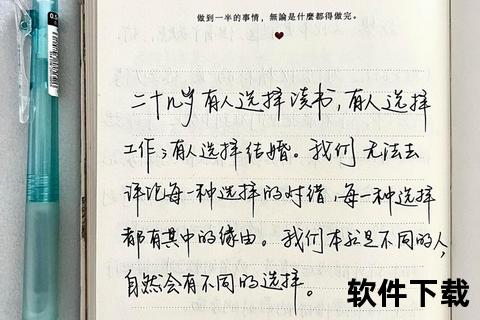 做到一半的事情，無論是什麼都得做完。
二十几岁有人选择读书，有人选择
工作；有人选择结婚。我们无法去
评论每一种选择的对错，每一种选择
都有其中的缘由。我们本就是不同的人，
自然会有不同的选择。
软件下载
0.5